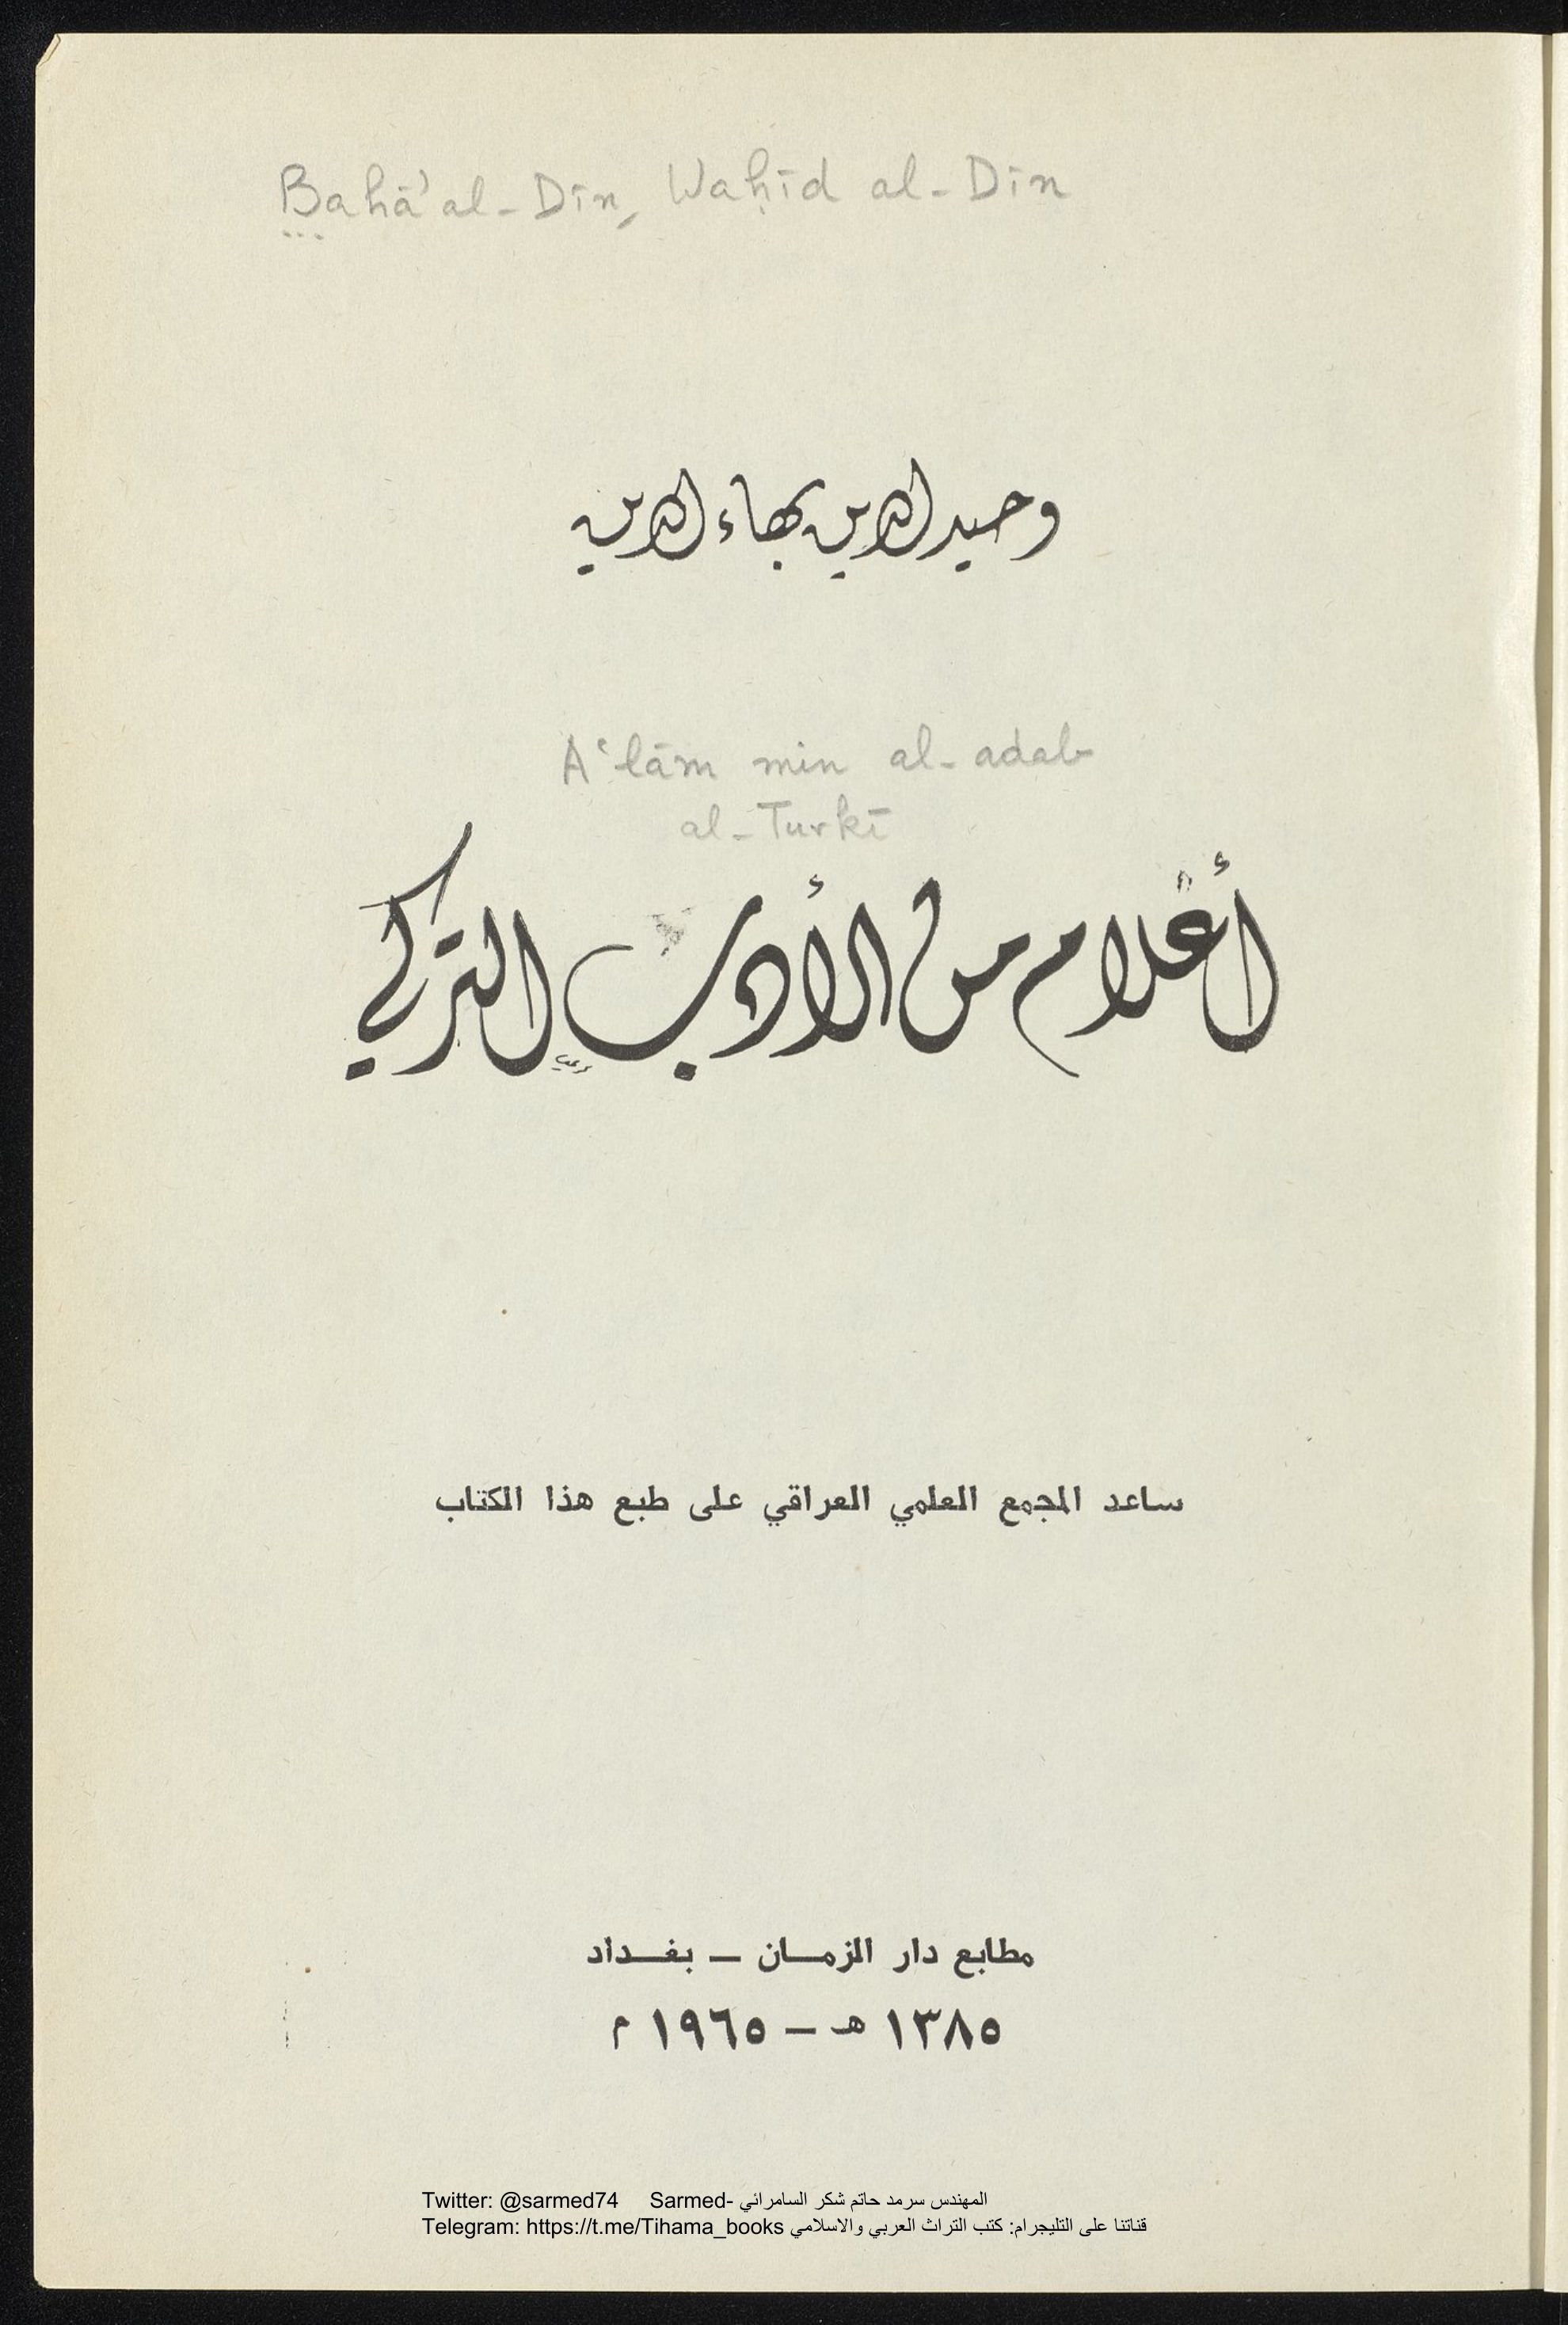 Bahā' al-Dīn, Waḥīd al-Dīn
وحيد الدين بهاء الدين
A‘lām min al-adab
al-Turkī
أعلام من الأدب التركي
ساعد المجمع العلمي العراقي على طبع هذا الكتاب
مطابع دار الزمـــان – بغـــداد
١٣٨٥ هـ – ١٩٦٥ م
Twitter: @sarmed74 Sarmed- المهندس سرمد حاتم شكر السامرائي
Telegram: https://t.me/Tihama_books قناتنا على التليجرام: كتب التراث العربي والاسلامي